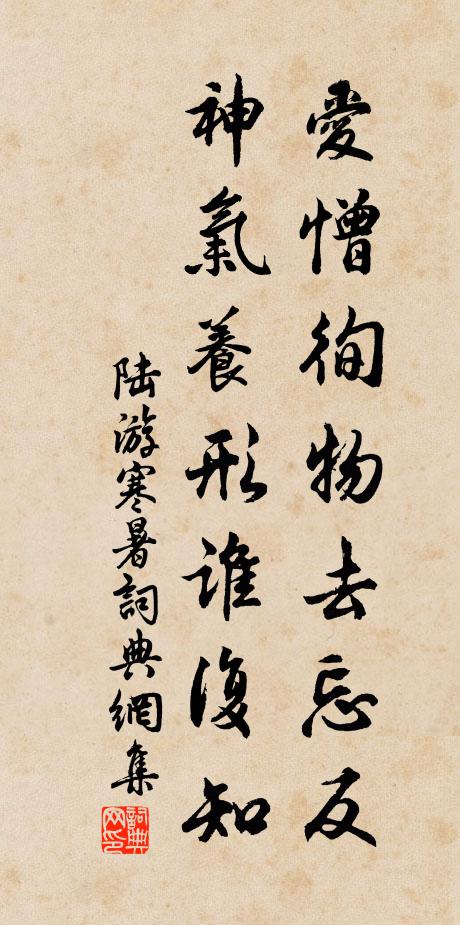 愛憎徇物去忘反
神氣養形誰復知
陆游寒暑詞典網集
詞典网印